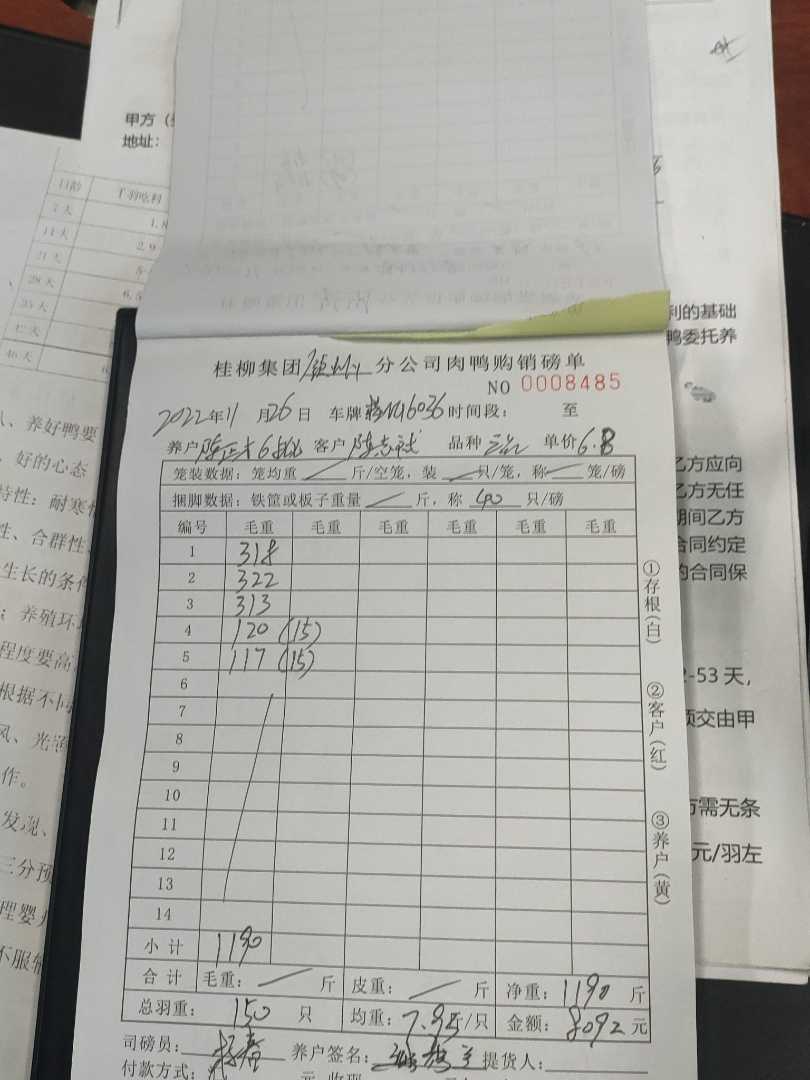 甲方
地址：
日龄 千羽吃料
7天 1.8
14天 2.9
21天
28天 6.5
35天
42天
46天
、养好鸭要
，好的心态
特性：耐寒
性、合群性
生长的条件
；养殖环
程度要高
根据不同
风、光
作。
发现、
三分预
不服
利的基础
鸭委托养
乙方应向
乙方无任
期间乙方
合同约定
的合同保
2-53天，
须交由甲
方需无条
元/羽左
桂柳集团 分公司肉鸭购销磅单
NO 0008485
2022年11月26日 车牌 6036 时间段： 至
养户 陈 客户 陈志 品种 单价6.8
笼装数据：笼均重 斤/空笼，装 只/笼，称 笼/磅
捆脚数据：铁筐或板子重量 斤，称 40 只/磅
编号 毛重 毛重 毛重 毛重 毛重 毛重
1 318
2 322
3 313
4 120 (15)
5 117 (15)
6
7
8
9
10
11
12
13
14
小计 1190
合计 毛重： 斤 皮重： 斤 净重：1190斤
总羽重：150只 均重：7.95斤/只 金额：8092元
司磅员： 养户签名： 提货人：
付款方式：
①存根(白)
②客户(红)
③养户(黄)